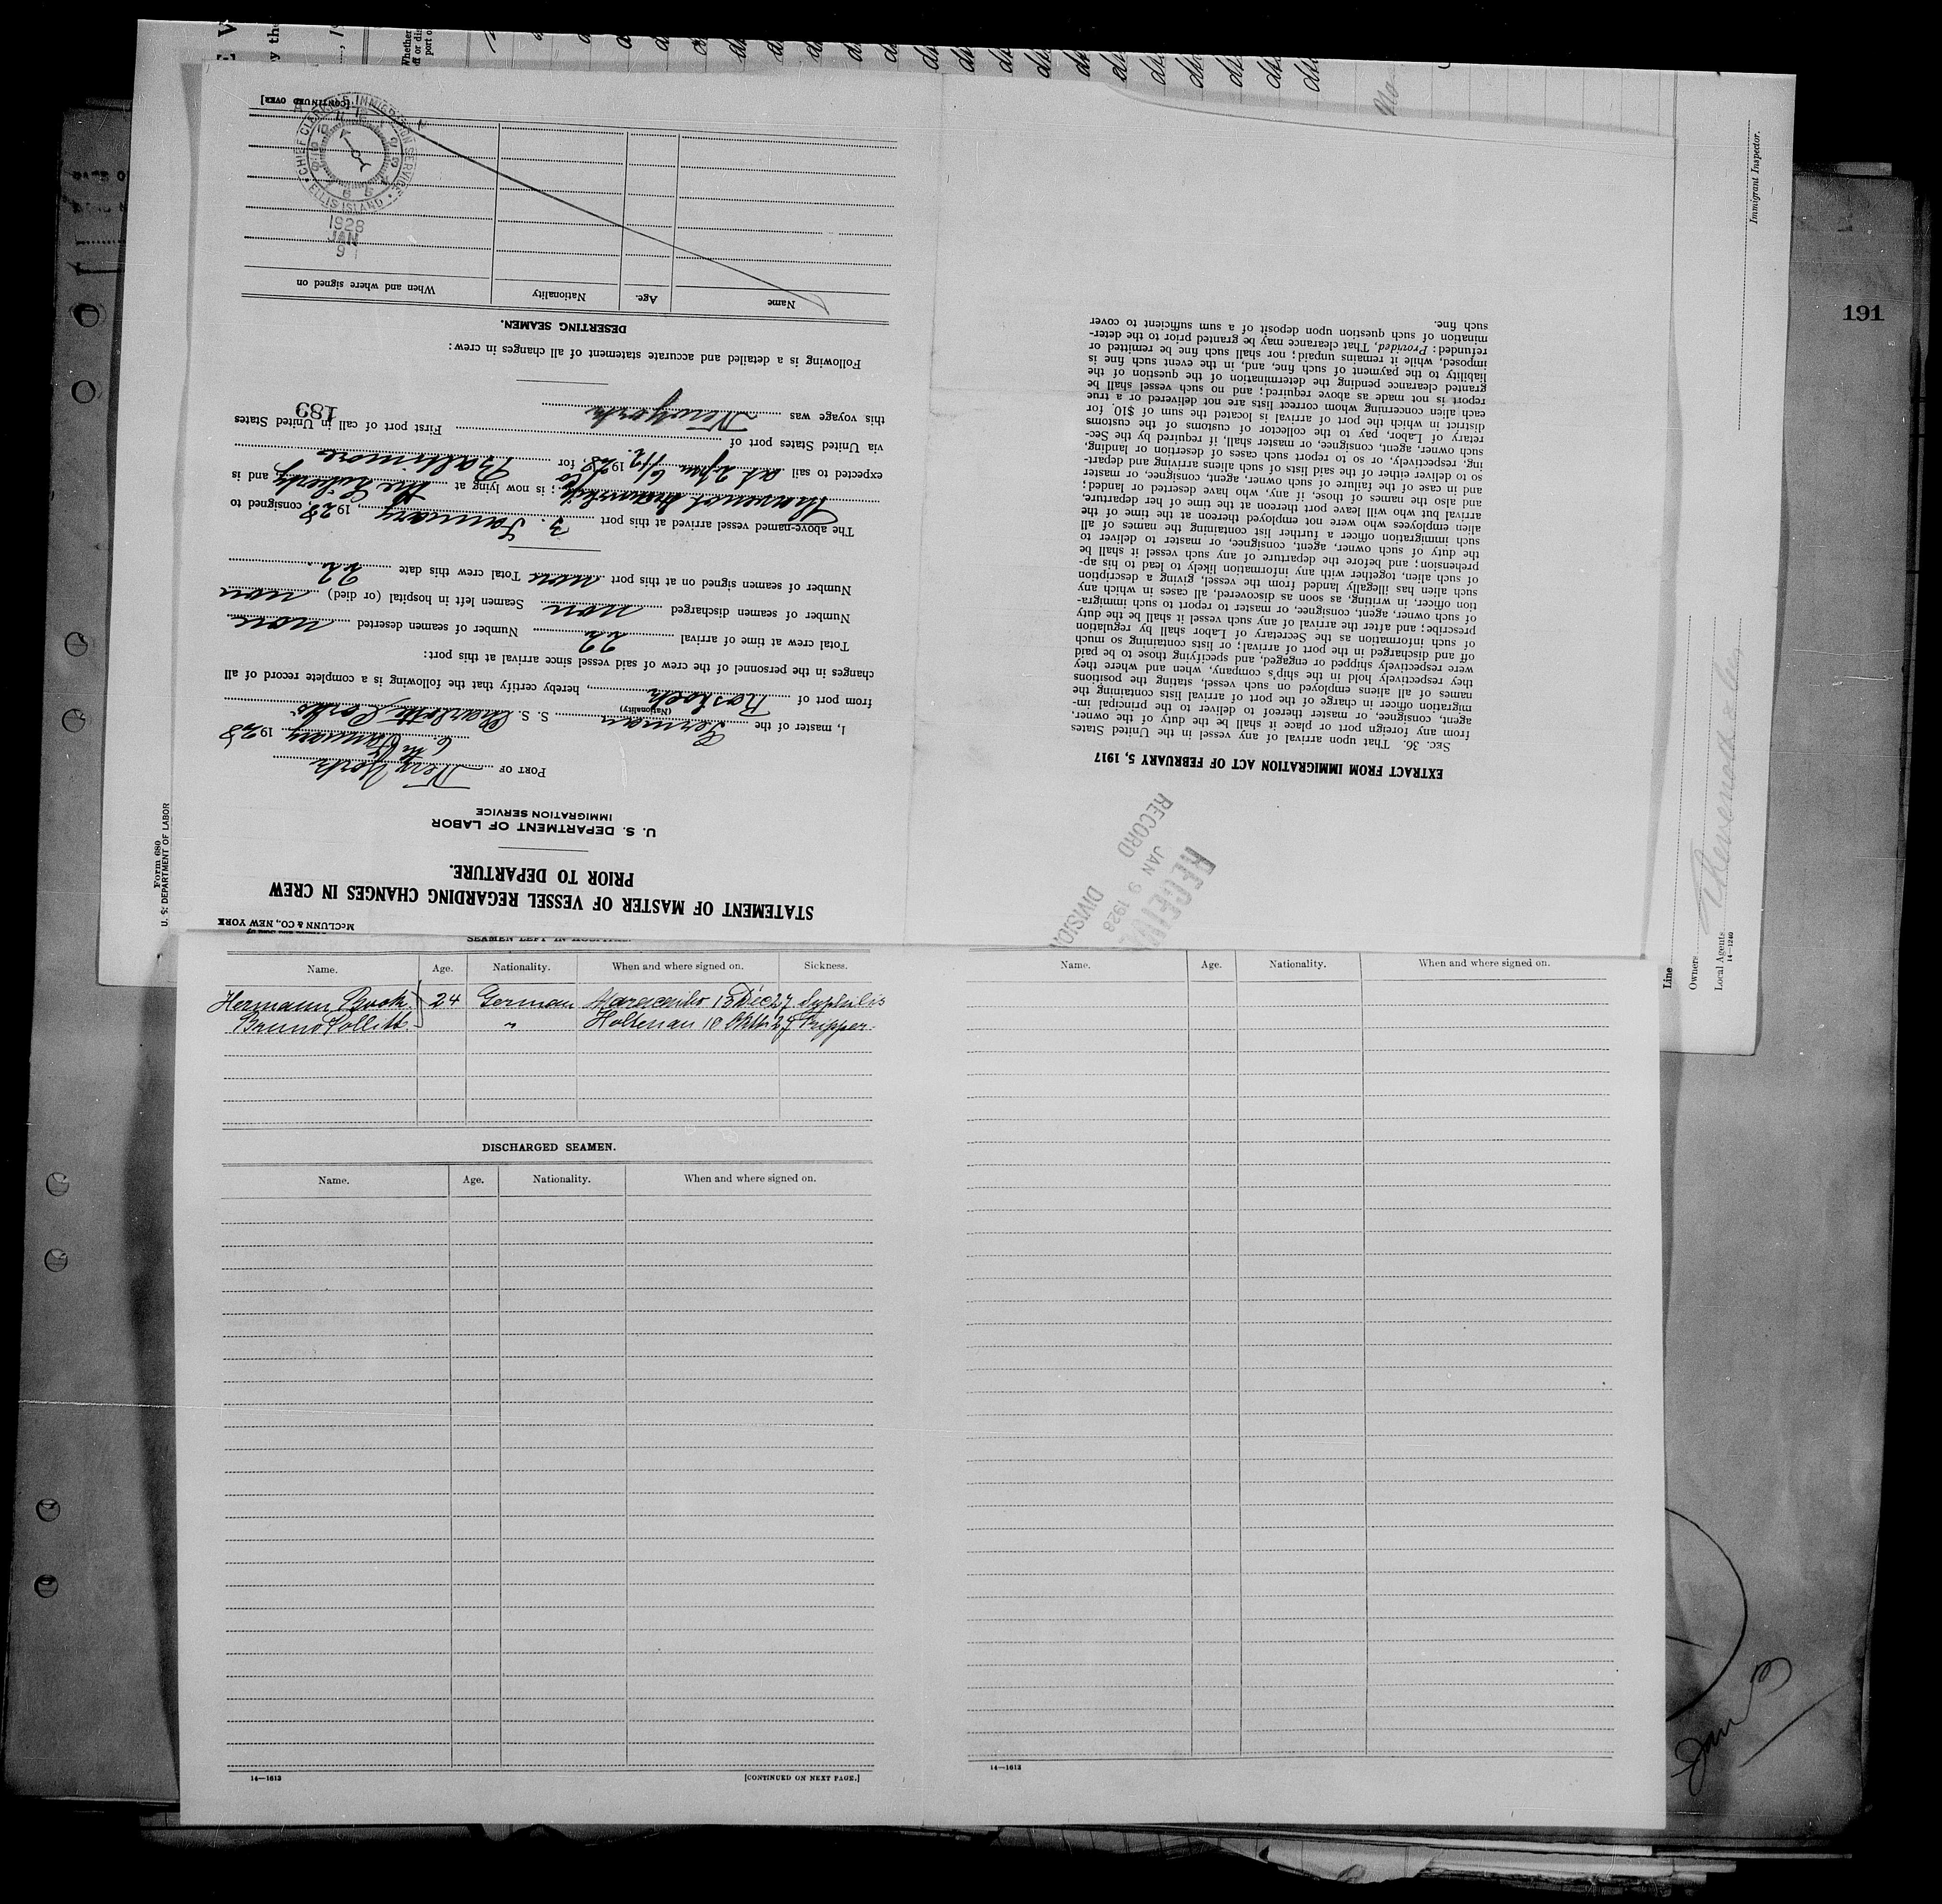 191
Immigrant Inspector.
Form 689
U. S. DEPARTMENT OF LABOR
Line
Owners
Local Agents
14—1240
McCLUNN & CO., NEW YORK
STATEMENT OF MASTER OF VESSEL REGARDING CHANGES IN CREW
PRIOR TO DEPARTURE.
U. S. DEPARTMENT OF LABOR
IMMIGRATION SERVICE
PORT OF New York
6th January 1928
I, master of the German S. S. Charlotte Cords
(Nationality)
from port of Rostock, hereby certify that the following is a complete record of all
changes in the personnel of the crew of said vessel since arrival at this port:
Total crew at time of arrival 22 Number of seamen deserted none
Number of seamen discharged none Seamen left in hospital (or died) none
Number of seamen signed on at this port none Total crew this date 22
The above-named vessel arrived at this port 3. January, 1928, consigned to
; is now lying at and is
expected to sail at 2 pm 6/1 1928, for Baltimore
via United States port of First port of call in United States
this voyage was Newyork
189
Following is a detailed and accurate statement of all changes in crew:
DESERTING SEAMEN.
Name Age. Nationality When and where signed on
[CONTINUED OVER]
CHIEF CLERK'S IMMIGRATION SERVICE
ELLIS ISLAND
1928
JAN
9
RECEIVED
JAN 9 1928
RECORD DIVISION
EXTRACT FROM IMMIGRATION ACT OF FEBRUARY 5, 1917
SEC. 36. That upon arrival of any vessel in the United States
from any foreign port or place it shall be the duty of the owner,
agent, consignee, or master thereof to deliver to the principal im-
migration officer in charge of the port of arrival lists containing the
names of all aliens employed on such vessel, stating the positions
they respectively hold in the ship's company, when and where they
were respectively shipped or engaged, and specifying those to be paid
off and discharged in the port of arrival; or lists containing so much
of such information as the Secretary of Labor shall by regulation
prescribe; and after the arrival of any such vessel it shall be the duty
of such owner, agent, consignee, or master to report to such immigra-
tion officer, in writing, as soon as discovered, all cases in which any
such alien has illegally landed from the vessel, giving a description
of such alien, together with any information likely to lead to his ap-
prehension; and before the departure of any such vessel it shall be
the duty of such owner, agent, consignee, or master to deliver to
such immigration officer a further list containing the names of all
alien employees who were not employed thereon at the time of the
arrival but who will leave port thereon at the time of her departure,
and also the names of those, if any, who have deserted or landed;
and in case of the failure of such owner, agent, consignee, or master
so to deliver either of the said lists of such aliens arriving and depart-
ing, respectively, or so to report such cases of desertion or landing,
such owner, agent, consignee, or master shall, if required by the Sec-
retary of Labor, pay to the collector of customs of the customs
district in which the port of arrival is located the sum of $10, for
each alien concerning whom correct lists are not delivered or a true
report is not made as above required; and no such vessel shall be
granted clearance pending the determination of the question of the
liability to the payment of such fine, and, in the event such fine is
imposed, while it remains unpaid; nor shall such fine be remitted or
refunded: Provided, That clearance may be granted prior to the deter-
mination of such question upon deposit of a sum sufficient to cover
such fine.
SEAMEN LEFT IN HOSPITAL.
Name. Age. Nationality. When and where signed on. Sickness.
Hermann 24 German 15 Dec 27 Syphilis
Bruno " Holtenau 10 Okt 27 Tripper.
DISCHARGED SEAMEN.
Name. Age. Nationality. When and where signed on.
14—1613
[CONTINUED ON NEXT PAGE.]
Name. Age. Nationality. When and where signed on.
14—1613
Jan 3